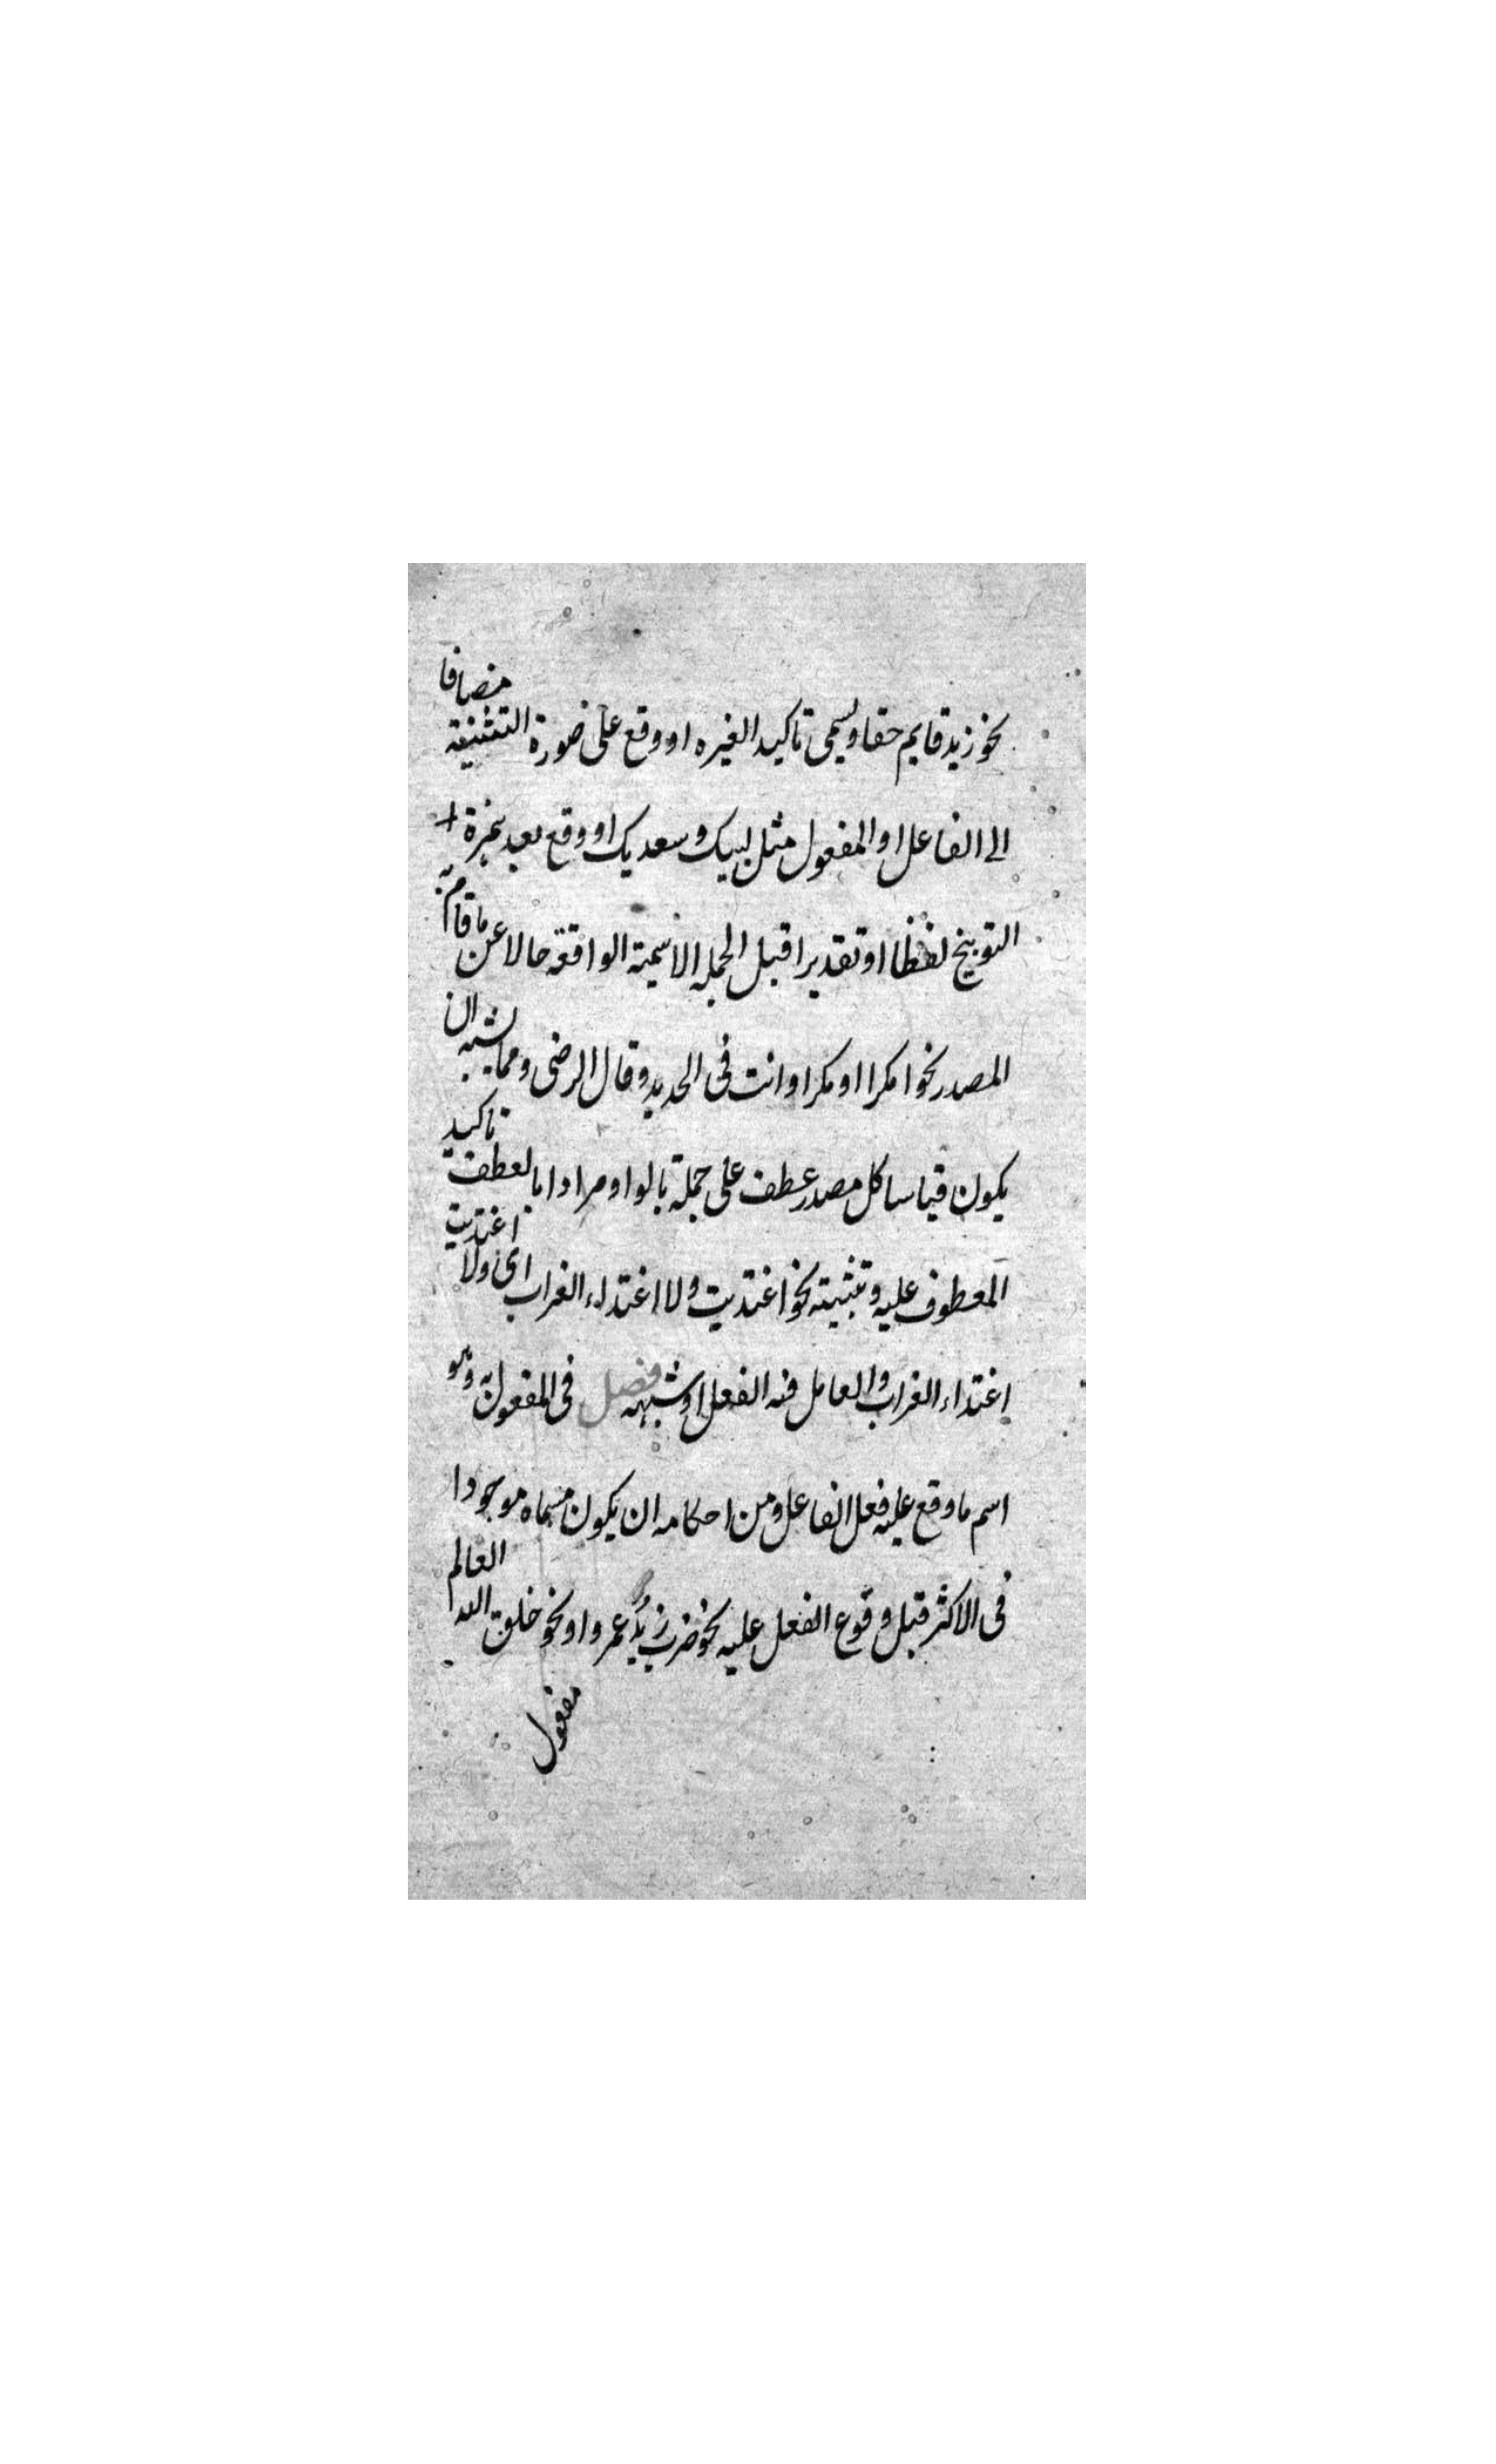 نحو زيد قايم حقا ويسمى تاكيد الغيره او وقع على صورة التثنية مضافا
الى الفاعل او المفعول مثل لبيك وسعديك او وقع بعد همزة
التوبيخ لفظا او تقديرا قبل الجمله الاسمية الواقعة حالا عن ما قام به
المصدر نحو امكرا او مكرا وانت فى الحديد وقال الرضى ومما يشبه ان
يكون قياسا كل مصدر عطف على جملة بالواو مرادا بالعطف تاكيد
المعطوف عليه وتثبيته نحو اغتديت ولا اغتداء الغراب اى ولا اغتديت
اغتداء الغراب والعامل فيه الفعل او شبهه فصل فى المفعول به وهو
اسم ما وقع عليه فعل الفاعل ومن احكامه ان يكون مسماه موجودا
فى الاكثر قبل وقوع الفعل عليه نحو ضرب زيدٌ عمروا ونحو خلق الله العالم
مفعول